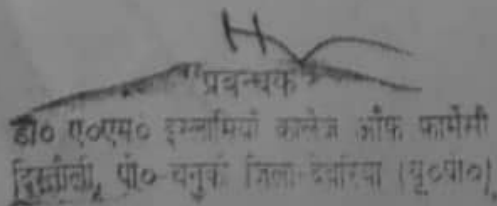 प्रबन्धक
डी० ए०एम० इस्लामियाँ कालेज ऑफ फार्मेसी
पी० चनुकी जिला-देवरिया (यू०पी०)